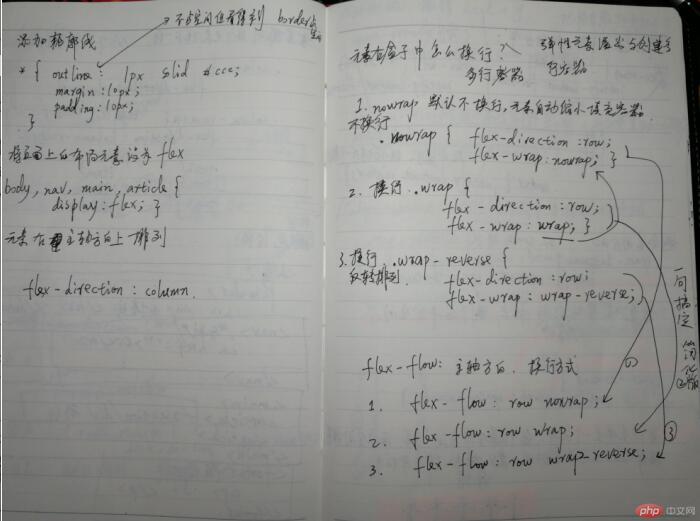 添加轮廓线
不占空间但看得到 border
* { outline: 1px solid #ccc;
margin:10px;
padding:10px;
}
将页面上的布局元素设为 flex
body, nav, main, article {
display: flex; }
元素在主轴方向上排列
flex-direction: column.
元素在盒子中怎么换行?
多行容器
弹性元素溢出与创建多
行容器
1. nowrap 默认不换行,元素自动缩小适应容器
不换行
.nowrap { flex-direction:row;
flex-wrap:nowrap; }
2. 换行 .wrap {
flex-direction:row;
flex-wrap:wrap; }
3. 换行 .wrap-reverse {
反转排列
flex-direction:row;
flex-wrap: wrap-reverse;
一句搞定 简化版
flex-flow: 主轴方向 换行方式
①
1. flex-flow: row nowrap;
②
2. flex-flow: row wrap;
③
3. flex-flow: row wrap-reverse;
php 中文网